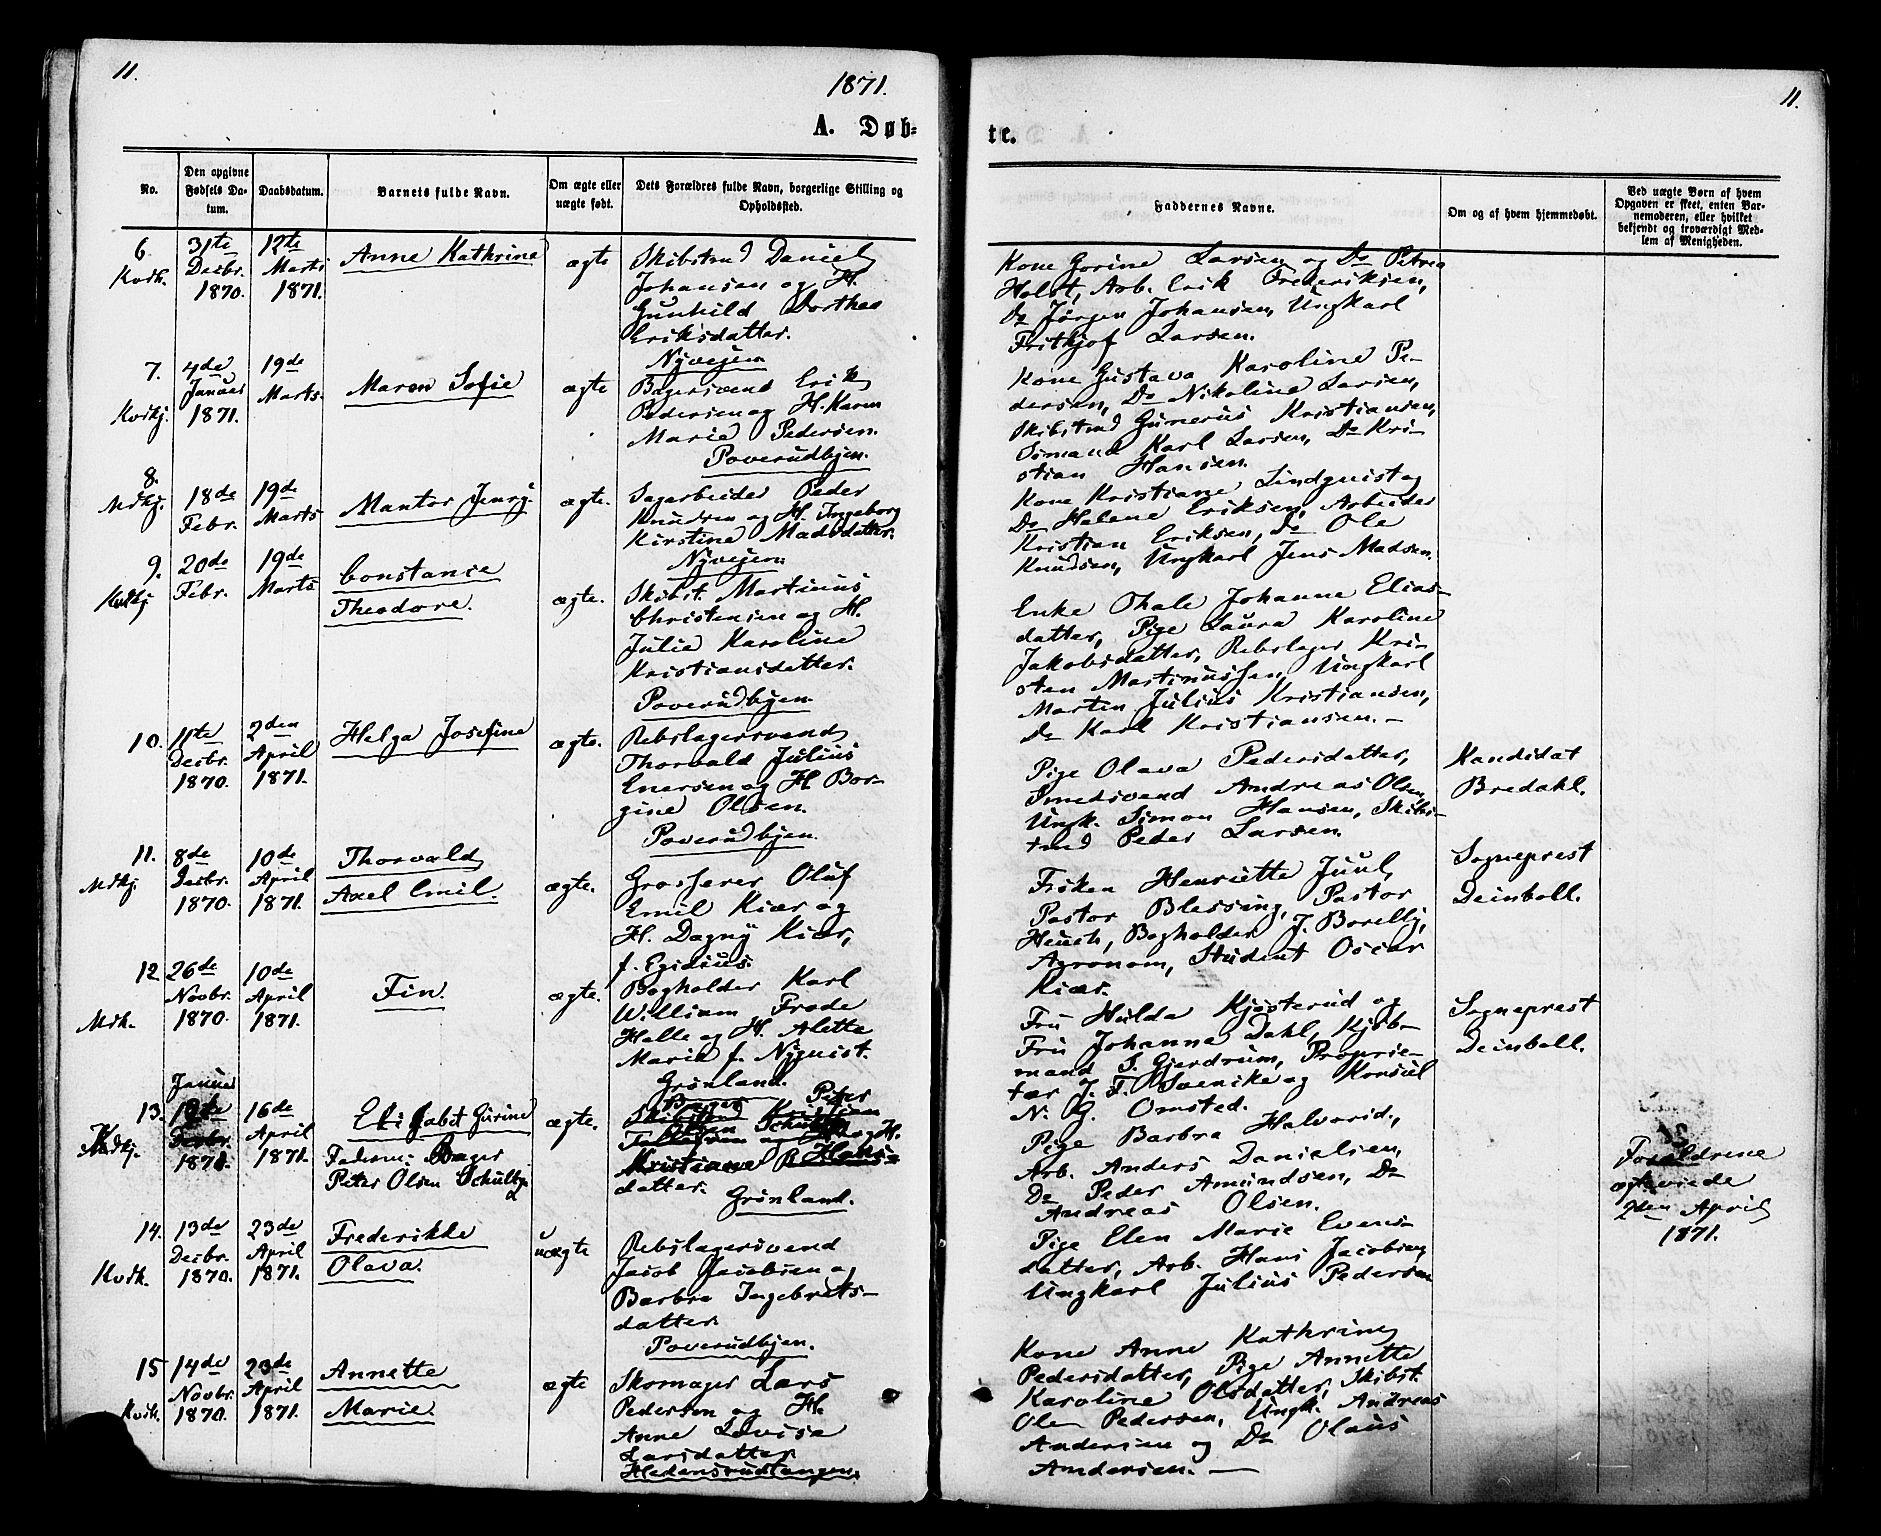 11.
1871.
A. Døb-
No.
Den opgivne Fødsels Da-tum.
Daabsdatum.
Barnets fulde Navn.
Om ægte eller uægte født.
Dets Forældres fulde Navn, borgerlige Stilling og Opholdssted.
6.
Kvdk.
31te
Decbr.
1870.
12te
Marts
1871.
Anne Kathrine
ægte
Skibstmd Daniel
Johansen og H.
Gunhild Dorthea
Eriksdatter.
Nyvejen
7.
Kvdkj.
4de
Januar
1871.
19de
Marts.
Maren Sofie
ægte
Bagersvend Erik
Pedersen og H. Karen
Marie Pedersen.
Poverudbyen.
8.
Mdkj.
18de
Febr.
19de
Marts
Mantor Jenrg.
ægte.
Sagarbeider Peder
Knudsen og H. Ingeborg
Kirstine Madsdatter.
Nyvejen
9.
Kvdkj.
20de
Febr.
19de
Marts
Constance
Theodore.
ægte.
Skibst. Martinius
Christensen og H.
Julie Karoline
Kristiansdatter.
Poverudbyen.
10.
11te
Decbr.
1870.
2den
April
1871.
Helga Josefine
ægte.
Rebslagersvend
Thorvald Julius
Enersen og H. Bor-
gine Olsen.
Poverudbyen.
11.
Mdkj.
8de
Decbr.
1870.
10de
April
1871.
Thorvald
Axel Emil.
ægte.
Grosserer Oluf
Emil Kiær og
H. Dagny Kiær,
f. Egidius.
12
Mdk.
26de
Novbr.
1870.
10de
April
1871.
Fin.
ægte.
Bogholder Karl
William Frode
Halle og H. Alette
Marie f. Nyquist.
Grønland.
13.
Januar
Decbr.
1871.
16de
April
1871.
Elisabet Gurine
Faderen: Bager
Peter Olsen Schulby
ægte.
Bager Peter
Olsen og H.
Kristiane Hans-
datter.
Grønland.
14.
Kvdk.
13de
Decbr.
1870.
23de
April
1871.
Frederikke
Olava.
uægte
Rebslagersvend
Jacob Jacobsen og
Barbra Ingebrets-
datter.
Poverudbyen.
15
Kvdk.
14de
Novbr.
1870.
23de
April
1871.
Annette
Marie.
ægte
Skomager Lars
Pedersen og H.
Anne Lovise
Larsdatter
Hedensrudtangen.
11.
te.
Faddernes Navne.
Om og af hvem hjemmedøbt.
Ved uægte Børn af hvem
Opgaven er skeet, enten Bar-
nemoderen, eller hvilket
bekjendt og troværdigt Med-
lem af Menigheden.
Kone Gorine Larsen og Do Petrea
Holst, Arb. Erik Frederiksen,
Do Jørgen Johansen, Ungkarl
Frithjof Larsen.
Kone Gustava Karoline Pe-
dersen, Do Nikoline Larsen,
Skibstmd Gunerius Kristiansen,
Sømand Karl Larsen, Do Kri-
stian Hansen.
Kone Kristiane Lindquist og
Do Helene Eriksen, Arbeider
Kristian Eriksen, Do Ole
Knudsen, Ungkarl Jens Madsen.
Enke Thale Johanne Elias-
datter, Pige Laura Karoline
Jakobsdatter, Rebslager Kri-
sten Martinussen, Ungkarl
Morten Julius Kristiansen,
Do Karl Kristiansen.—
Pige Olava Pedersdatter,
Smedsvend Andreas Olsen,
Ungk. Simon Hansen, Skibs-
tmd Peder Larsen.
Kandidat
Bredahl.
Frøken Henriette Juul,
Pastor Blessing, Pastor
Heuch, Bogholder J. Borelly,
Agronom, Student Oscar
Kiær.
Sogneprest
Deinboll.
Fru Hulda Kjøsterud og
Fru Johanne Dahl, Kjøb-
mand S. Gjerdrum, Proprie-
tær J. F. Svenike og Konsul
N. G. Omsted.
Sogneprest
Deinboll.
Pige Barbra Halvorsd.,
Arb. Anders Danielsen,
Do Peder Amundsen, Do
Andreas Olsen.
Forældrene
ægteviede
2den April
1871.
Pige Elen Marie Evens-
datter, Arb. Hans Jacobsen,
Ungkarl Julius Pedersen
Kone Anne Kathrine
Pedersdatter, Pige Annette
Karoline Olsdatter, Skibst.
Ole Pedersen, Ungk. Andreas
Andersen og Do Olaus
Andersen.—